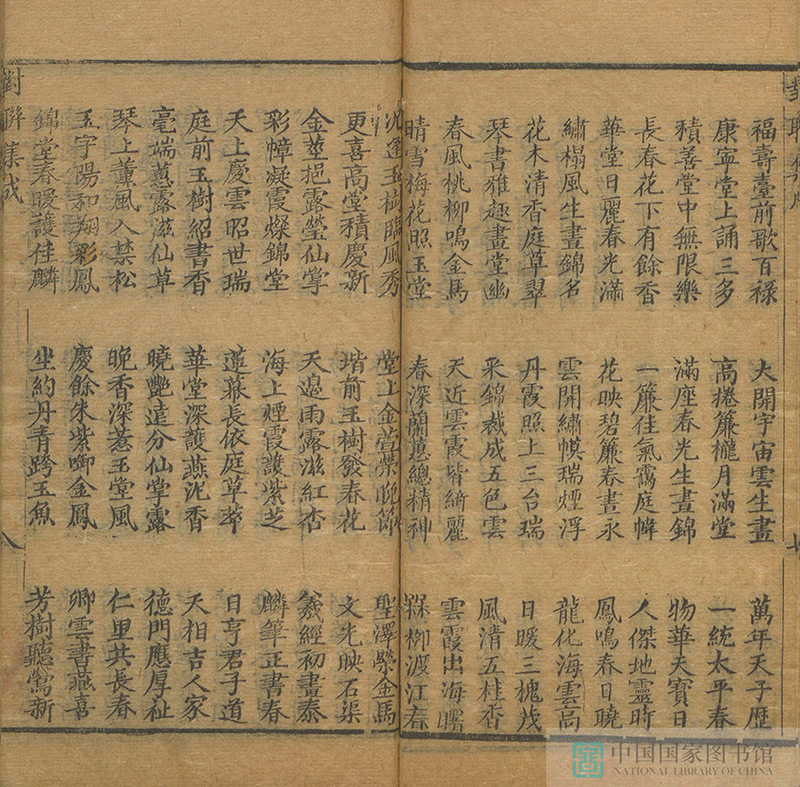 福壽臺前歌百祿
康寧堂上誦三多
積善堂中無限樂
長春花下有餘香
華堂日麗春光滿
繡榻風生晝錦名
花木清香庭草翠
琴書雅趣畫堂幽
春風桃柳鳴金馬
晴雪梅花照玉堂
大開宇宙雲生畫
高捲簾櫳月滿堂
滿座春光生晝錦
一簾佳氣靄庭幃
花映碧簾春晝永
雲開繡幙瑞煙浮
丹霞照上三台瑞
采錦裁成五色雲
天近雲霞皆綺麗
春深蘭蕙總精神
萬年天子歷
一統太平春
物華天寶日
人傑地靈時
鳳鳴春日曉
龍化海雲高
日暖三槐茂
風清五桂香
雲霞出海曙
柳渡江春
逢玉樹臨風秀
更喜高堂積慶新
金莖挹露瑩仙掌
彩幛凝霞燦錦堂
天上慶雲昭世瑞
庭前玉樹紹書香
毫端蕙露滋仙草
琴上薰風入禁松
玉宇陽和翔彩鳳
錦堂春暖護佳麟
堂上金萱榮晚節
堦前玉樹發春花
天邊雨露滋紅杏
海上煙霞護紫芝
蓮幕長依庭草翠
華堂深護燕泥香
曉艷遠分仙掌露
晚香深惹玉堂風
慶餘朱紫啣金鳳
坐約丹青跨玉魚
聖澤縈金馬
文光映石渠
羲經初畫泰
麟筆正書春
日亨君子道
天相吉人家
德門應厚祉
仁里共長春
卿雲書燕喜
芳樹聽鶯新
對聯集成
八
中国国家图书馆
NATIONAL LIBRARY OF CHINA